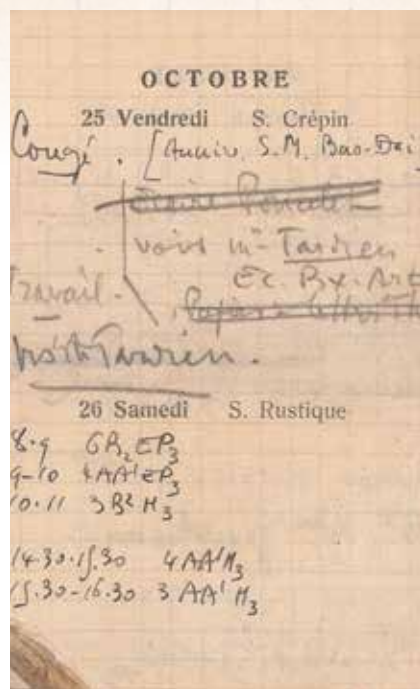 OCTOBRE
25 Vendredi S. Crépin
Congé. [Anniv. S.M. Bao-Dai
voir Mr Tardieu
Ec. Bx. Art
Travail.
Tardieu.
26 Samedi S. Rustique
8.9 6R₂EP₃
9-10 4AA'EP₃
10.11 3B²H₃
14.30.15.30 4AA'H₃
15.30-16.30 3AA'H₃